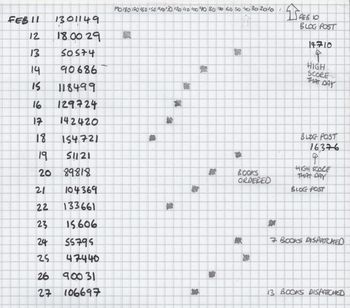 FEB 10
BLOG POST
FEB 11 1301149
12 180029
14710
13 50574
HIGH SCORE THAT DAY
14 90686
15 118499
16 129724
17 142420
18 154721
BLOG POST
16376
19 51121
HIGH SCORE THAT DAY
20 89818 BOOKS ORDERED
21 104369 BLOG POST
22 133661
23 15606
24 55795 7 BOOKS DISPATCHED
25 47440
26 90031
27 106697 13 BOOKS DISPATCHED